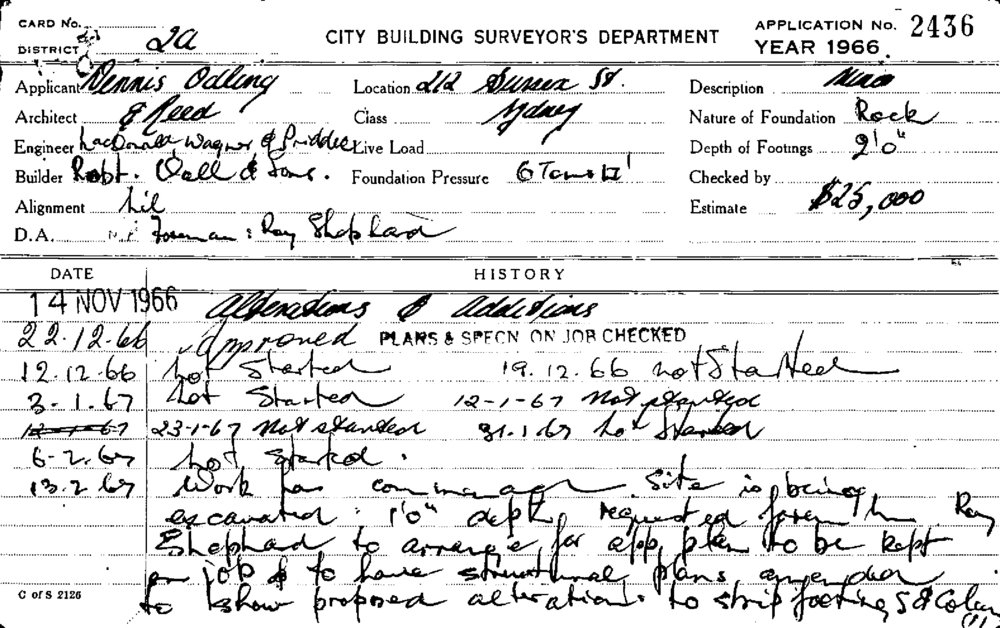 CARD No.
DISTRICT 2a
CITY BUILDING SURVEYOR'S DEPARTMENT
APPLICATION No. 2436
YEAR 1966.
Applicant Dennis Odling Location 212 Sussex St. Description
Architect & Reed Class Sydney Nature of Foundation Rock
Engineer MacDonald, Wagner & Priddle Live Load Depth of Footings 2'0"
Builder Robt. Wall & Sons. Foundation Pressure 6 Tons Checked by
Alignment Nil Estimate $25,000
D.A. Foreman: Ray Shephard
DATE HISTORY
14 NOV 1966 Alterations & additions
22.12.66 Approved PLANS & SPECN ON JOB CHECKED
12.12.66 Not Started 19.12.66 not Started
3-1.67 Not Started 12-1-67 Not started
12-1-67 23-1-67 Not started 31.1.67 Not Started
6-2.67 Not Started.
13.2.67 Work has commenced Site is being
excavated 1'0" depth, requested foreman Ray
Shephard to arrange for app. plan to be kept
on job & to have structural plans amended
C of S 2126 to show proposed alterations to strip footings & Column